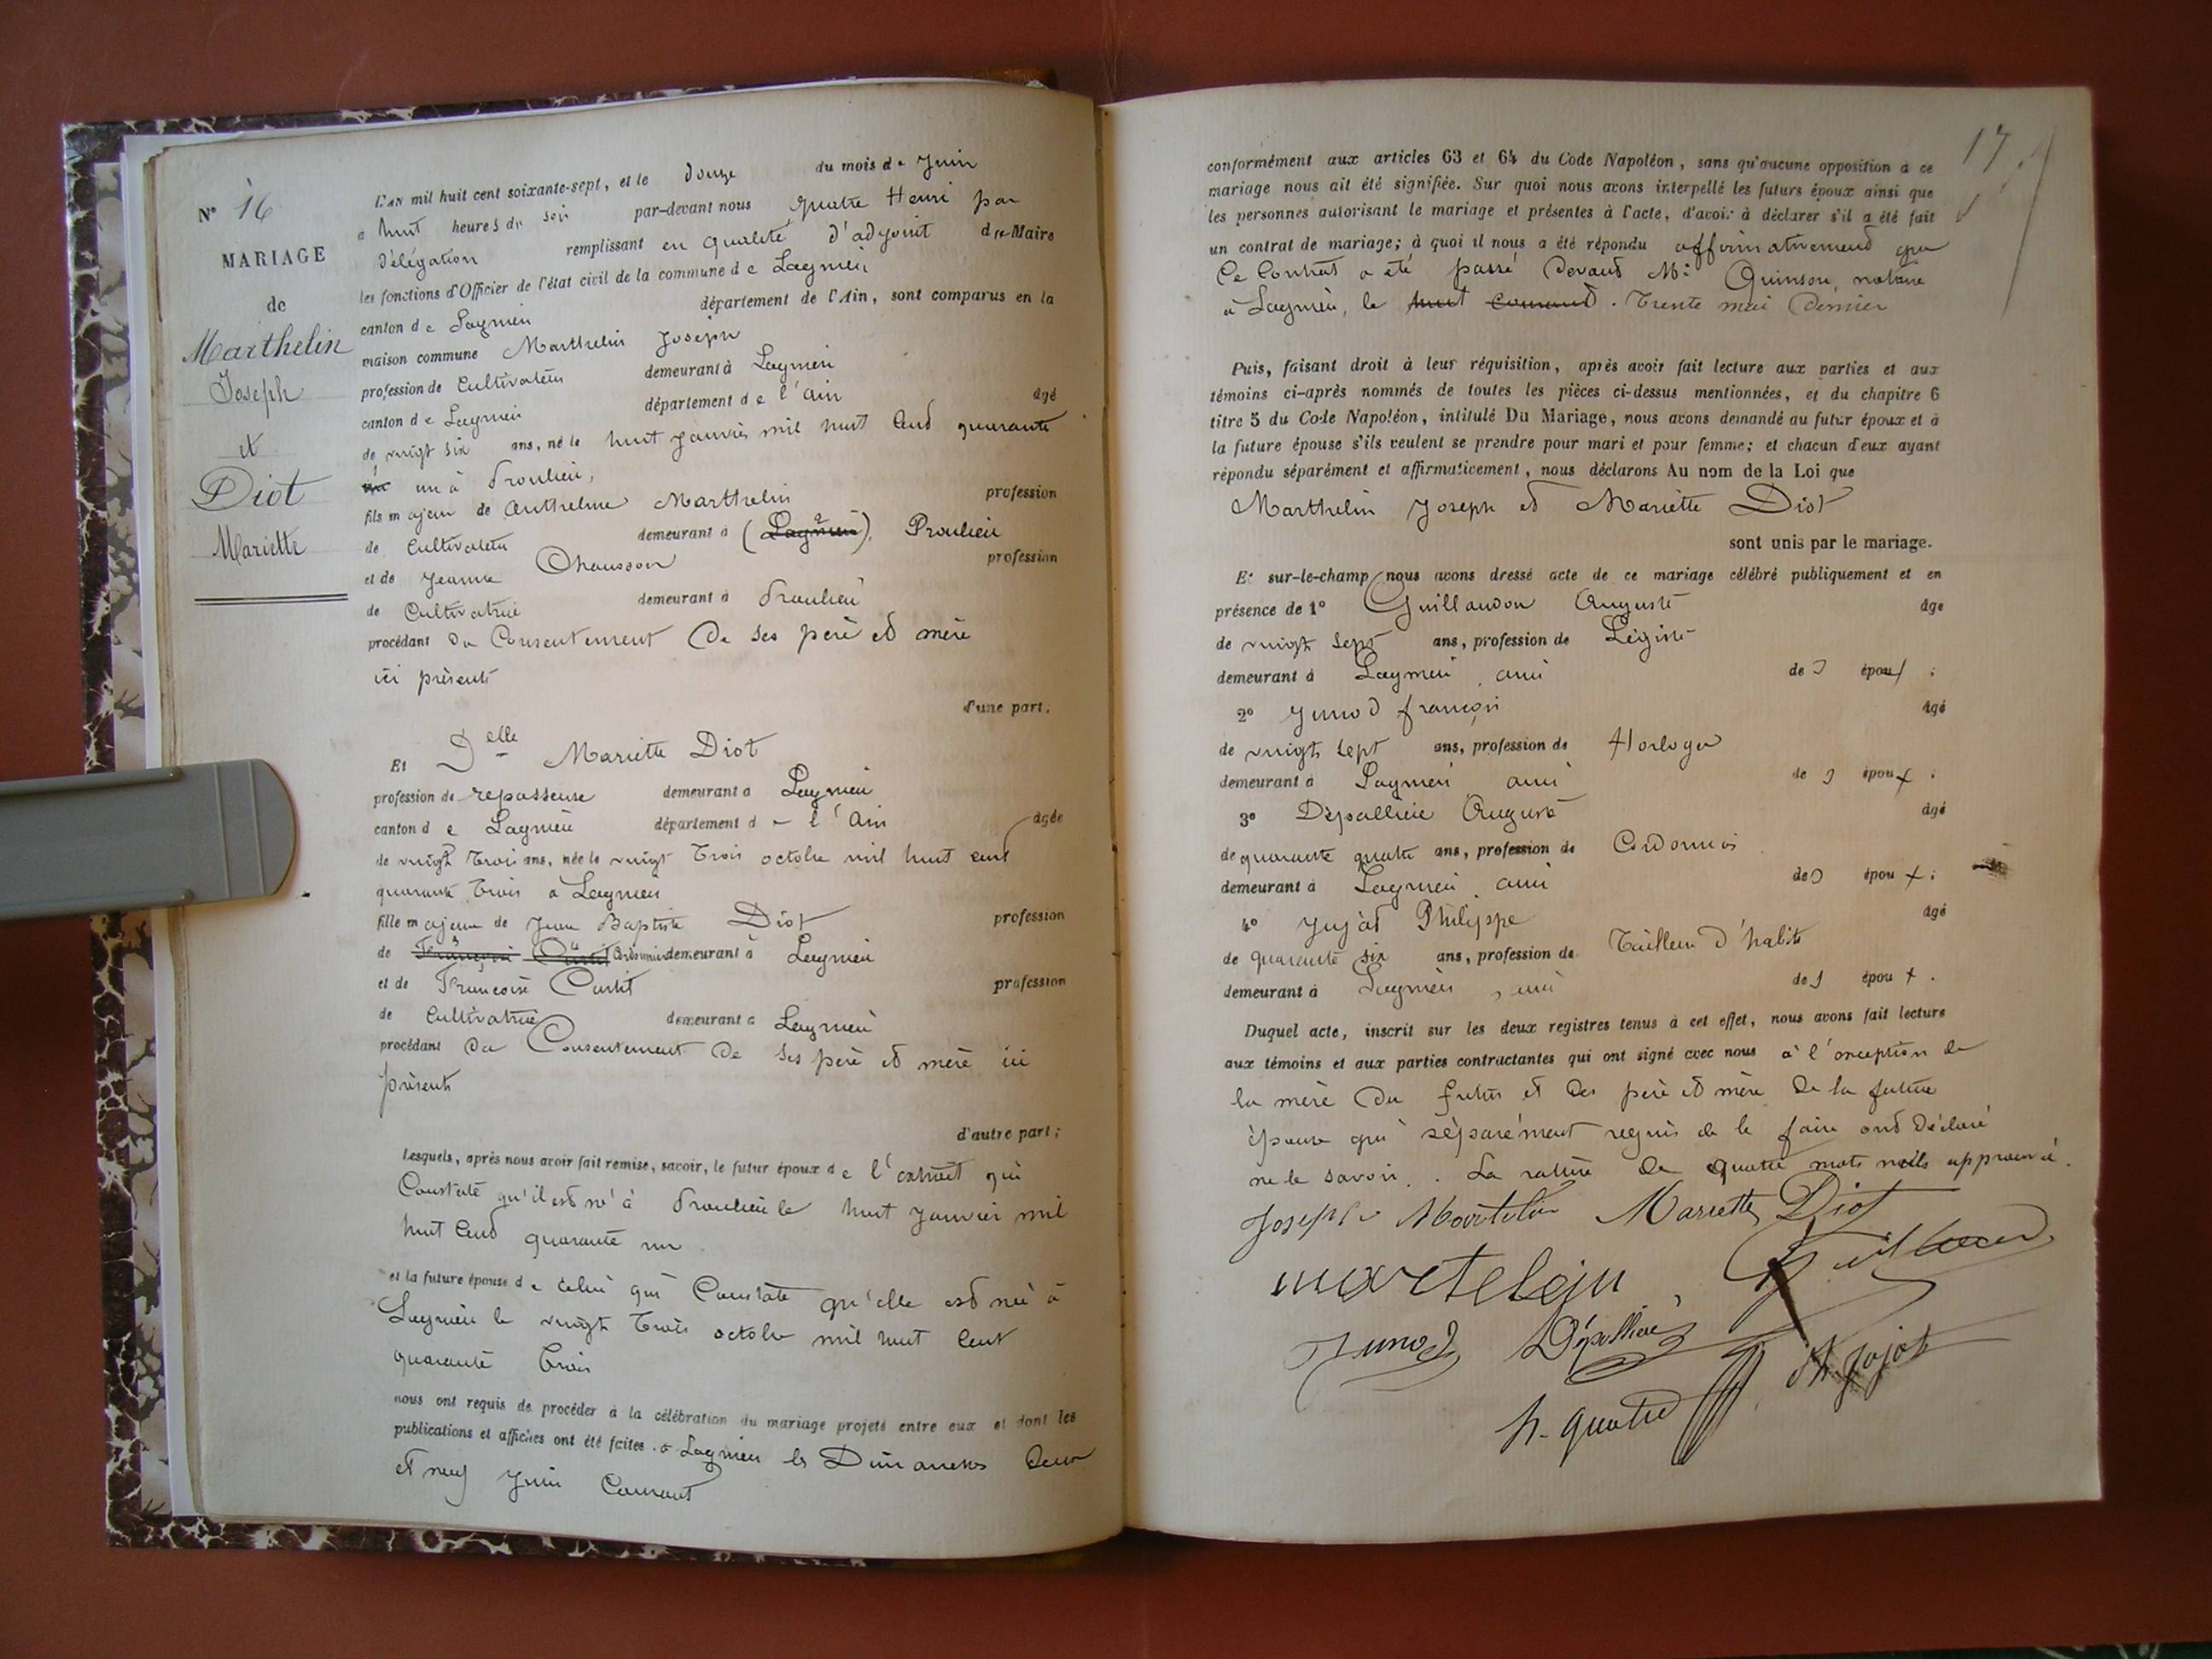 N° 16
MARIAGE
de
Marthelin
Joseph
et
Diot
Mariette
L'an mil huit cent soixante-sept, et le douze du mois de Juin
a huit heures du soir par-devant nous Quatre Henri par
délégation remplissant en qualité d'adjoint de Maire
les fonctions d'Officier de l'état civil de la commune de Lagnieu
canton de Lagnieu département de l'Ain, sont comparus en la
maison commune Marthelin Joseph
profession de Cultivateur demeurant à Lagnieu
canton de Lagnieu département de l'Ain âgé
de vingt six ans, né le huit Janvier mil huit cent quarante
un à Proulieu,
fils majeur de Anthelme Marthelin profession
de Cultivateur demeurant à (Lagnieu), Proulieu
et de Jeanne Chausson profession
de Cultivatrice demeurant à Proulieu
procédant du Consentement De ses père et mère
ici présents
d'une part.
Et Delle Mariette Diot
profession de repasseuse demeurant à Lagnieu
canton de Lagnieu département de l'Ain âgée
de vingt trois ans, née le vingt trois octobre mil huit cent
quarante trois à Lagnieu
fille majeure de Jean Baptiste Diot profession
de Françoise Curtit Cordonnier demeurant à Lagnieu
et de Françoise Curtit profession
de Cultivatrice demeurant à Lagnieu
procédant du Consentement de ses père et mère ici
présents
d'autre part;
Lesquels, après nous avoir fait remise, savoir, le futur époux de l'extrait qui
Constate qu'il est né à Proulieu le huit Janvier mil
huit cent quarante un
et la future épouse de celui qui Constate qu'elle est née à
Lagnieu le vingt trois octobre mil huit cent
quarante trois
nous ont requis de procéder à la célébration du mariage projeté entre eux et dont les
publications et affiches ont été faites à Lagnieu les Dimanches deux
et neuf Juin Courant
17
conformément aux articles 63 et 64 du Code Napoléon, sans qu'aucune opposition à ce
mariage nous ait été signifiée. Sur quoi nous avons interpellé les futurs époux ainsi que
les personnes autorisant le mariage et présentes à l'acte, d'avoir à déclarer s'il a été fait
un contrat de mariage; à quoi il nous a été répondu affirmativement que
Ce Contrat a été passé devant Me Quinson, notaire
à Lagnieu, le huit Courant. Trente mai Dernier
Puis, faisant droit à leur réquisition, après avoir fait lecture aux parties et aux
témoins ci-après nommés de toutes les pièces ci-dessus mentionnées, et du chapitre 6
titre 5 du Code Napoléon, intitulé Du Mariage, nous avons demandé au futur époux et à
la future épouse s'ils veulent se prendre pour mari et pour femme; et chacun d'eux ayant
répondu séparément et affirmativement, nous déclarons Au nom de la Loi que
Marthelin Joseph et Mariette Diot
sont unis par le mariage.
Et sur-le-champ nous avons dressé acte de ce mariage célébré publiquement et en
présence de 1° Guillaudon Auguste âgé
de vingt sept ans, profession de Légiste
demeurant à Lagnieu, ami de époux;
2° Junod françois âgé
de vingt sept ans, profession de Horloger
demeurant à Lagnieu ami de époux;
3° Dépallière Auguste âgé
de quarante quatre ans, profession de Cordonnier
demeurant à Lagnieu, ami de époux;
4° Jujat Philippe âgé
de quarante six ans, profession de Tailleur d'habits
demeurant à Lagnieu, ami de époux.
Duquel acte, inscrit sur les deux registres tenus à cet effet, nous avons fait lecture
aux témoins et aux parties contractantes qui ont signé avec nous à l'exception de
la mère du futur et des père et mère de la future
épouse qui séparément requis de le faire ont déclaré
ne le savoir. La rature de quatre mots nuls approuvé.
Joseph Martelin Mariette Diot
martelein
Junod Dépallière Ph. Jojat
h. quatre